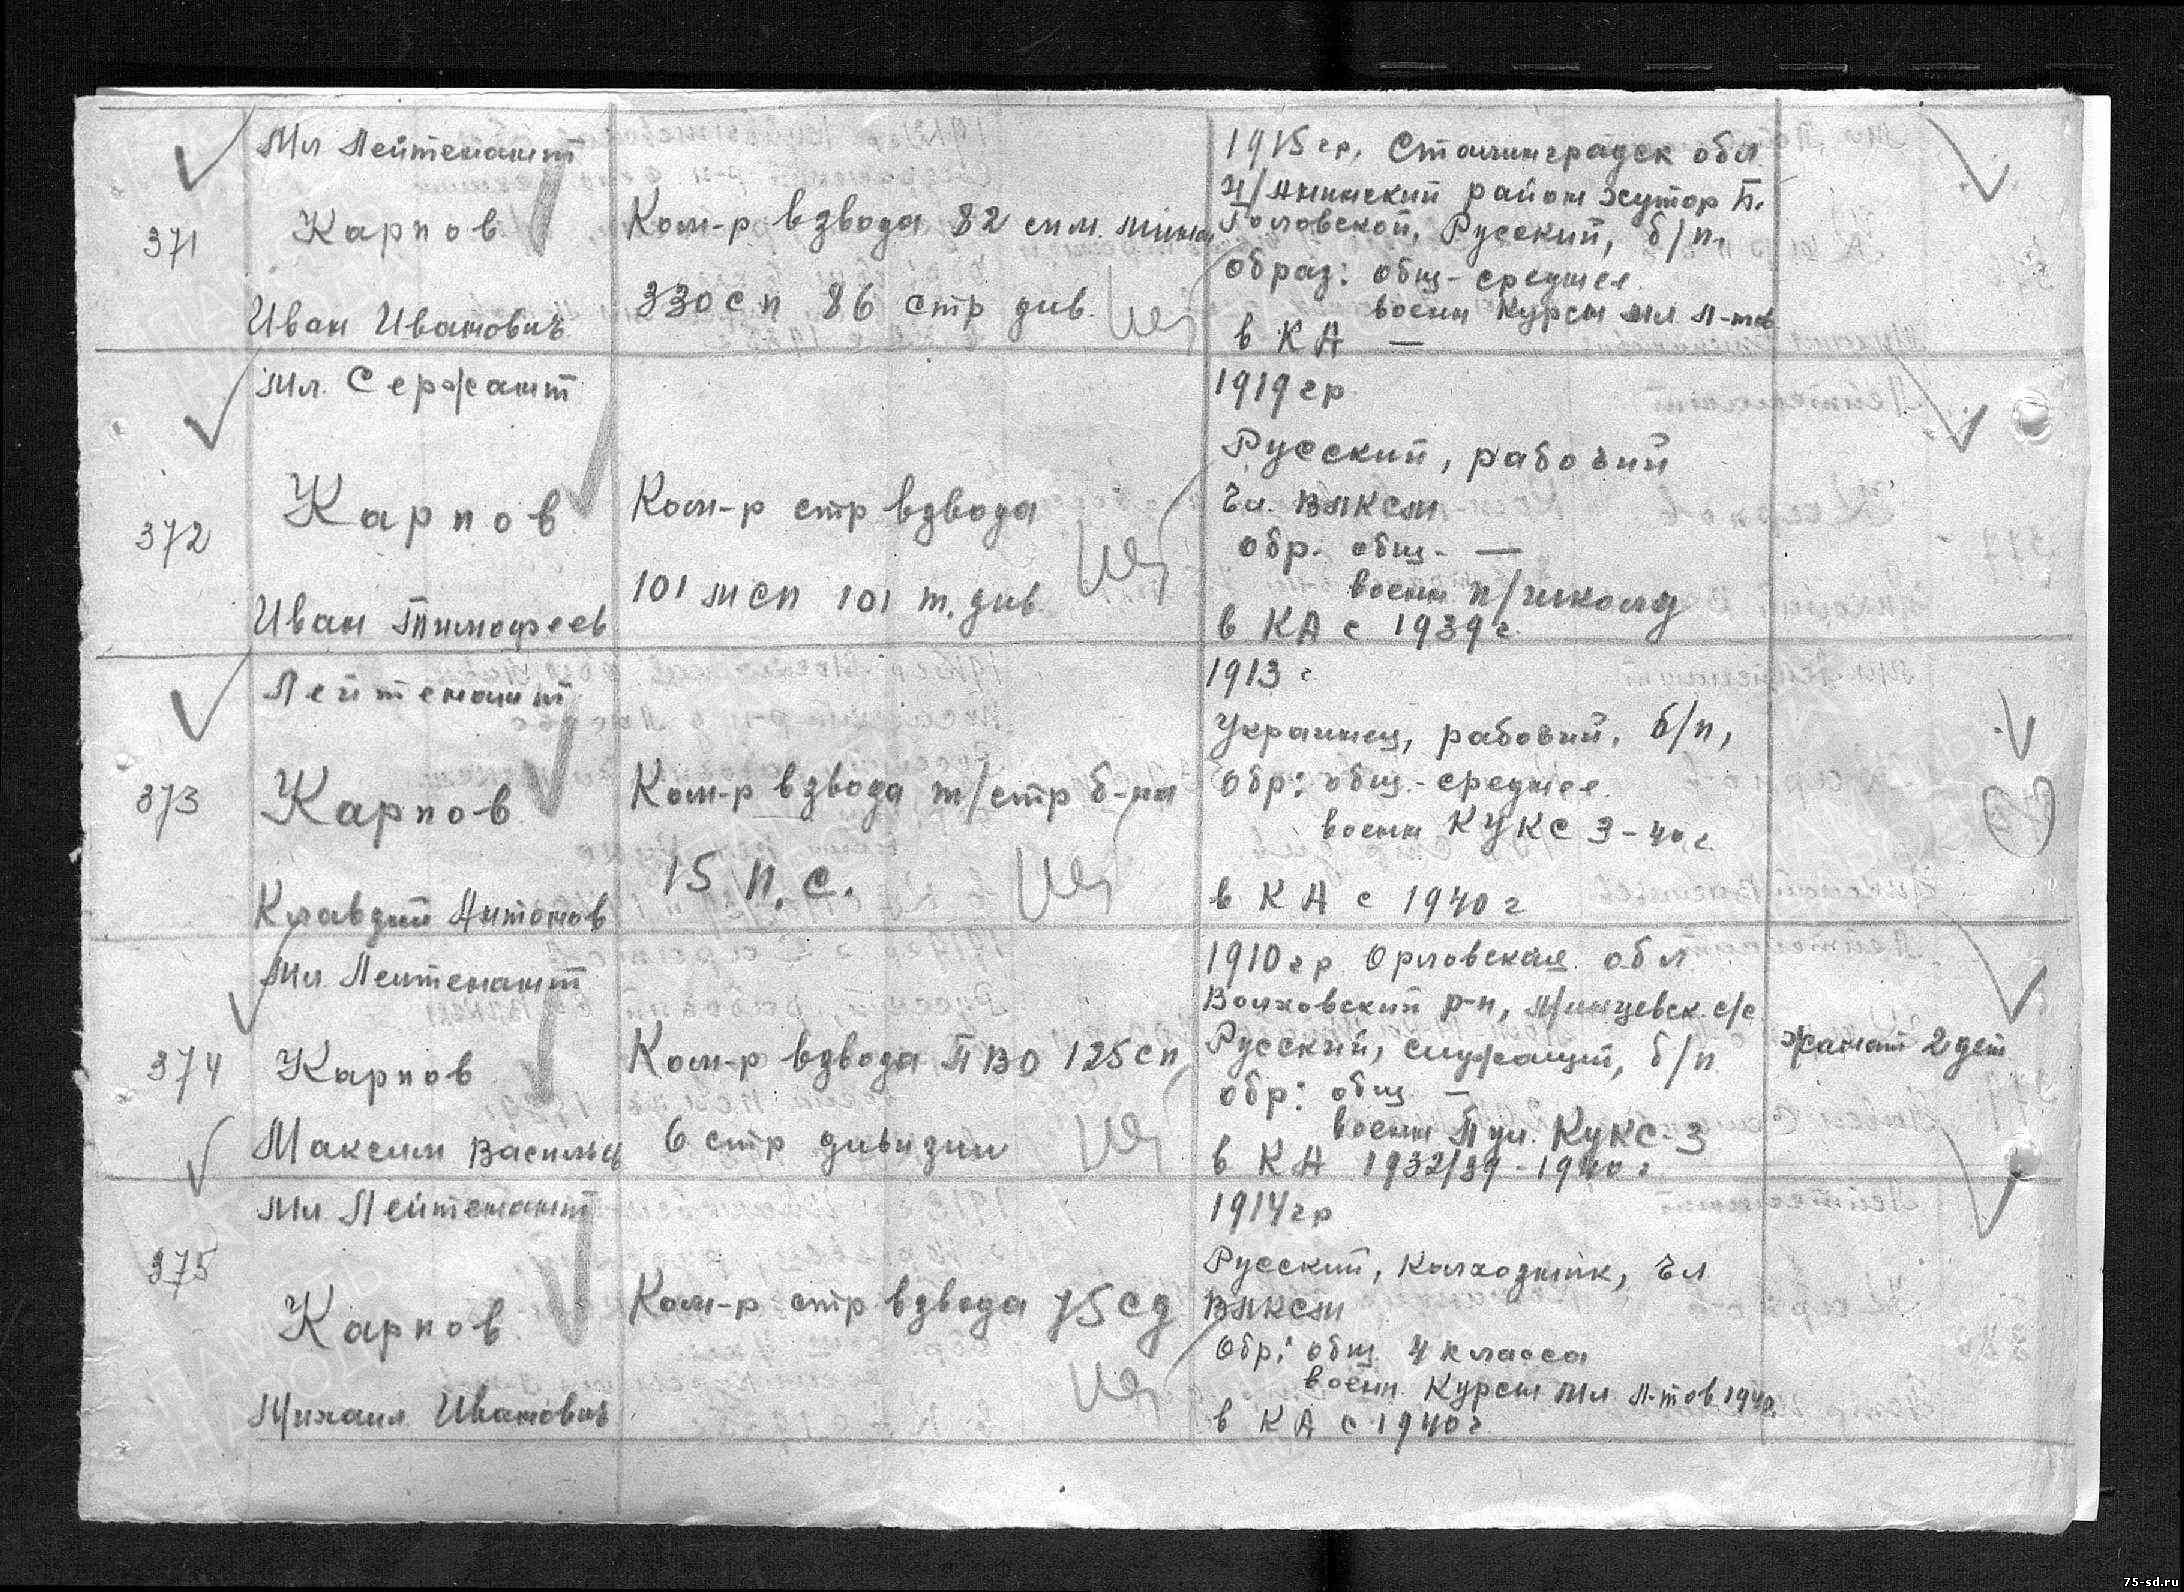 Мл Лейтенант
371
Карпов
Иван Иванович
Ком-р взвода 82 мм. мином
330 сп 86 стр див.
1915 гр, Сталинградск обл
Н/Анинский район Хутор Б.
Головской, Русский, б/п.
образ: общ-среднее.
военн Курсы мл л-тов
в КА —
Мл. Сержант
372
Карпов
Иван Тимофеев
Ком-р стр взвода
101 мсп 101 т. див
1919 гр
Русский, рабочий
Чл. ВЛКСМ
обр. общ. —
военн п/школы
в КА с 1939 г.
Лейтенант
373
Карпов
Клавдий Антонов
Ком-р взвода т/стр б-на
15 п. с.
1913 г
Украинец, рабочий, б/п,
Обр: общ.-среднее.
военн КУКС З-40 г.
в КА с 1940 г
Мл. Лейтенант
374
Карпов
Максим Васильев
Ком-р взвода ПВО 125 сп
6 стр дивизии
1910 гр Орловская обл
Волховский р-н, с/с
Русский, служащий, б/п
обр: общ —
военн Пул. КУКС-З
в КА 1932/39-1940 г
Женат 2 дет
Мл. Лейтенант
375
Карпов
Михаил Иванович
Ком-р стр взвода 75 сд
1914 гр
Русский, Колхозник, Чл
ВЛКСМ
Обр: общ 4 класса
военн. Курсы мл. л-тов 1940.
в КА с 1940 г
75-sd.ru